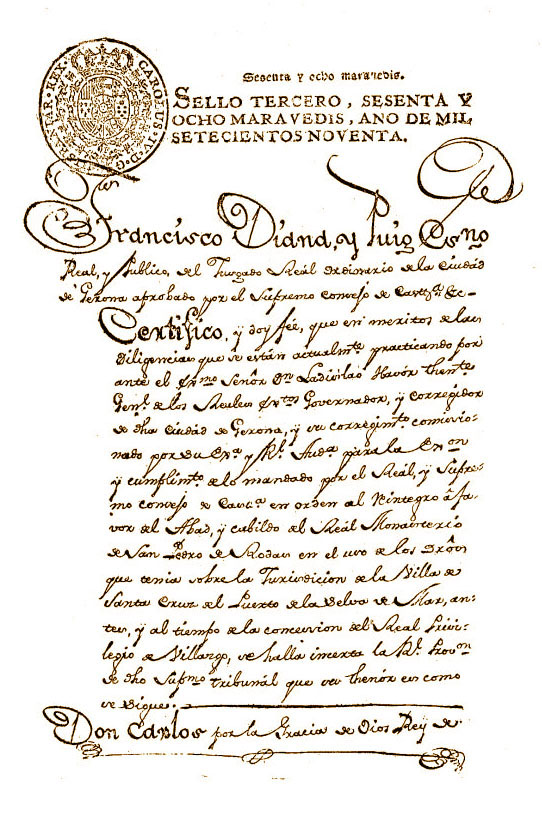 CAROLUS IV D G HISPANIAR REX
Sesenta y ocho maravedis.
SELLO TERCERO, SESENTA Y
OCHO MARAVEDIS, ANO DE MIL
SETECIENTOS NOVENTA.
Francisco Diana, y Puig Esno
Real, y Publico, del Jusgado Reál Ordinario de la Ciudad
de Gerona aprobado por el Supremo Consejo de Castª. &c-
Certifico, y doy fée, que en meritos de las
Diligencias que se están actualmte. practicando por
ante el Exmo Señor Dn. Ladislao Havór Thente
Genl. de los Reales Extos Governador, y corregidor
de dha ciudad de Gerona, y su corregimto. comisio-
nado por su Exª. y Rl. Audª. para la Exon
y cumplimto. de lo mandado por el Reál, y Supre-
mo consejo de Castª. en orden al Reintegro â fa-
vor del Abad, y cabildo del Reál Monasterio
de San Pedro de Rodas en el uso de los Drôs
que tenia sobre la Jurisdicion de la Villa de
Santa Cruz del Puerto de la Selva de Mar, an-
tes, y al tiempo de la concession del Real Privi-
legio de Villasgo, se halla inserta la Rl. Provon
de dho Supmo tribunál que su thenór es como
se sigue.
Don Carlos por la Gracia de Dios Rey de